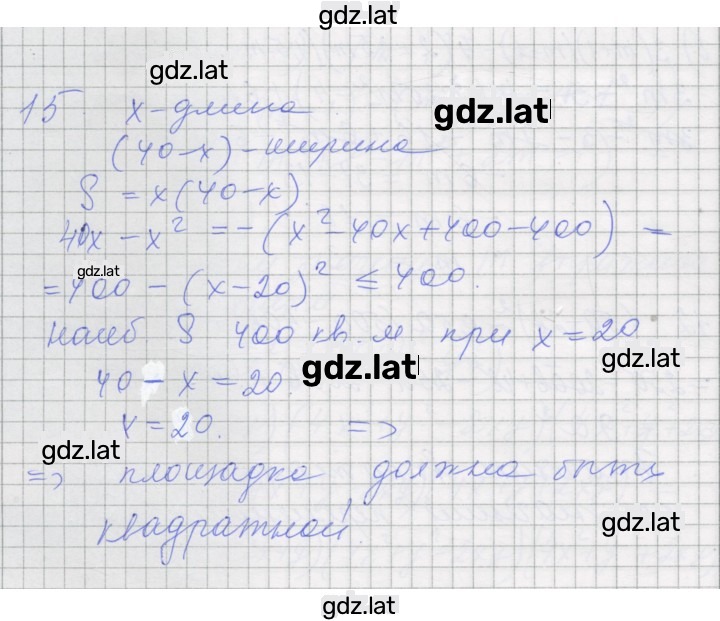 gdz.lat
gdz.lat
15 x - длина gdz.lat
(40-x) - ширина
S = x(40-x).
40x - x² = -(x² - 40x + 400 - 400) =
gdz.lat
= 400 - (x-20)² ≤ 400.
наиб S 400 кв. м при x = 20
gdz.lat
gdz.lat
40 - x = 20.
x = 20. =>
gdz.lat
=> площадка должна быть
квадратной
gdz.lat
gdz.lat